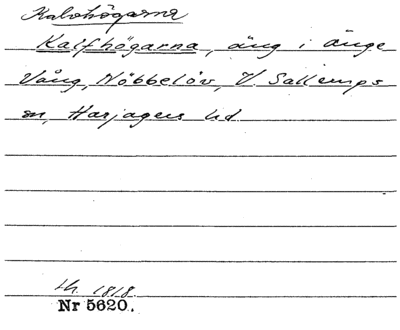 Kalvhögarna
Kalfhögarna, äng i änge
Vång, Nöbbelöv, V. Sallerups
sn, Harjagers hd
Lh. 1818.
Nr 5620.